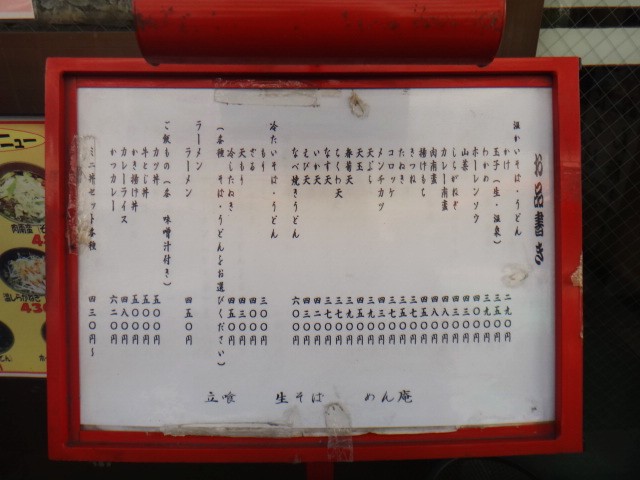 お品書き
温かいそば・うどん
かけ 二九〇円
玉子(生・温泉) 三五〇円
わかめ 三九〇円
ホーレンソウ 四〇〇円
山菜 四三〇円
しらがねぎ 四三〇円
カレー南蛮 四八〇円
肉南蛮 四八〇円
揚げもち 四五〇円
きつね 三七〇円
たぬき 三五〇円
コロッケ 三七〇円
メンチカツ 四三〇円
天ぷら 三九〇円
天玉 四五〇円
春菊天 三九〇円
ちくわ天 三七〇円
なす天 三七〇円
いか天 四二〇円
えび天 四三〇円
なべ焼きうどん 六〇〇円
冷たいそば・うどん
もり 三〇〇円
ざる 四〇〇円
天もり 四三〇円
冷したぬき 四五〇円
(各種 そば・うどんをお選びください)
ラーメン
ラーメン 四五〇円
ご飯もの(各 味噌汁付き)
カツ丼 五〇〇円
牛とじ丼 五〇〇円
かき揚げ丼 五〇〇円
カレーライス 四八〇円
カツカレー 六二〇円
ミニ丼セット各種 四三〇円〜
立喰 生そば めん庵
ニュー
肉南蛮
430